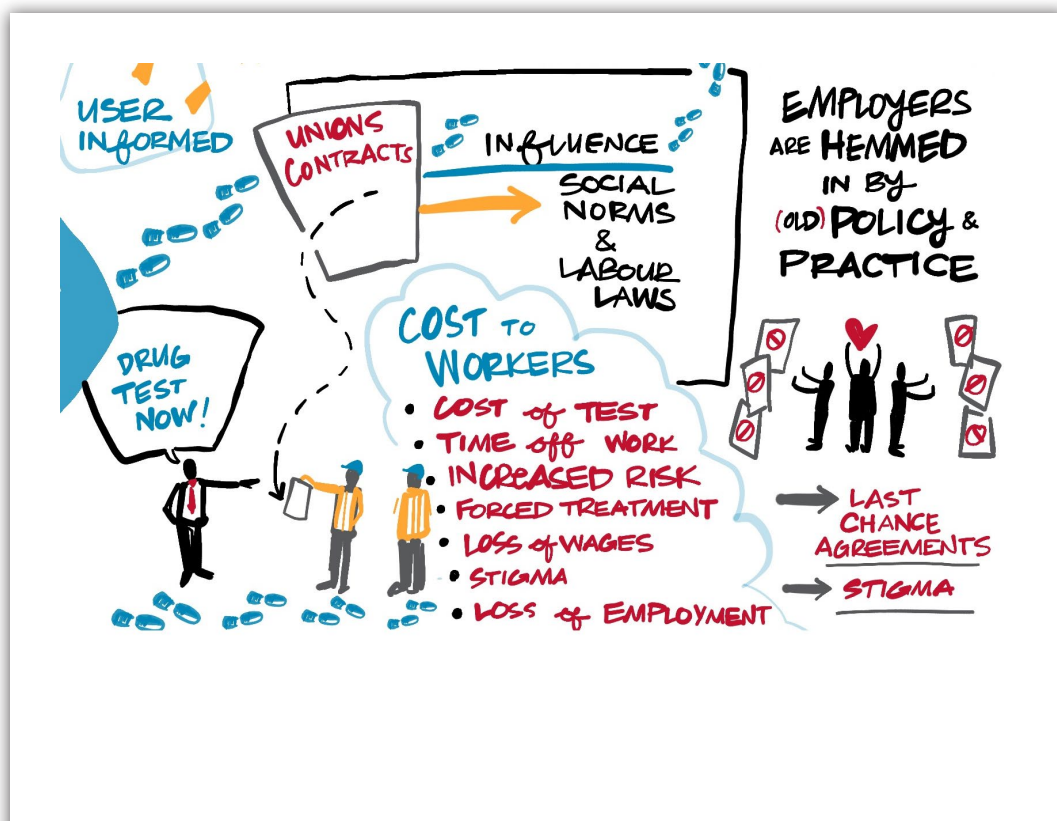 USER
INFORMED
UNIONS
CONTRACTS
INFLUENCE
SOCIAL
NORMS
&
LABOUR
LAWS
EMPLOYERS
ARE HEMMED
IN BY
(OLD) POLICY &
PRACTICE
DRUG
TEST
NOW!
COST TO
WORKERS
• COST of TEST
• TIME off WORK
• INCREASED RISK
• FORCED TREATMENT
• LOSS of WAGES
• STIGMA
• LOSS of EMPLOYMENT
LAST
CHANCE
AGREEMENTS
STIGMA